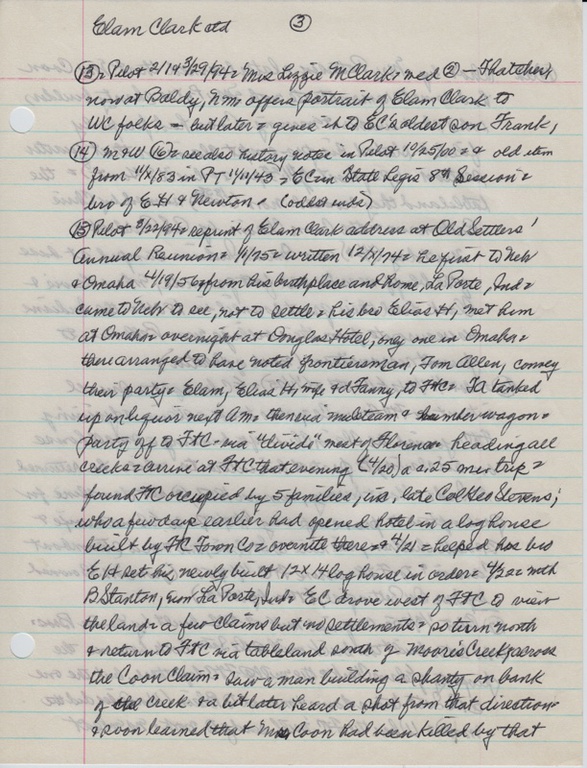 Elam Clark ctd ③
⑬ = Pilot 2/1 & 3/29/94 = Mrs Lizzie M Clark = med ② - Thatcher,
now at Baldy, NMe offers portrait of Elam Clark to
WC folks - but later = gives it to EC's oldest son Frank,
⑭ M & W ⑥ = see also history notes in Pilot 10/25/00 = & old item
from 11/X/83 in PT 11/11/43 = EC in State Legis 8th Session =
bro of E.H & Newton
⑮ Pilot 3/22/94 = reprint of Elam Clark address at Old Settlers'
Annual Reunion = 1/1/75 = written 12/X/74 = he first to Neb
& Omaha 4/19/56 = from his birthplace and home, La Porte, Ind =
came to Neb to see, not to settle = his bro Elias H, met him
at Omaha = overnight at Douglas Hotel, only one in Omaha =
there arranged to have noted frontiersman, Tom Allen, convey
their party = Elam, Elias H, wife & d Fanny, to FtC = TA tanked
up on liquor next Am = then via mule team & lumber wagon =
party off to FtC - via "divide" west of Florence = heading all
creeks = arrive at FtC that evening (4/20) a ±25 mi trip =
found FtC occupied by 5 families, inc, late Col Geo Stevens,
who a few days earlier had opened hotel in a log house
built by FtC Town Co = overnite there = & 4/21 = helped his bro
EH set his newly built 12x14 log house in order = 4/22 = with
B Stanton, from La Porte, Ind = EC drove west of FtC to view
the land = a few claims but no settlements = so turn north
& return to FtC via tableland south of Moore's Creek = across
the Coon Claim = saw a man building a shanty on bank
of the creek & a bit later heard a shot from that direction =
& soon learned that Mr Coon had been killed by that